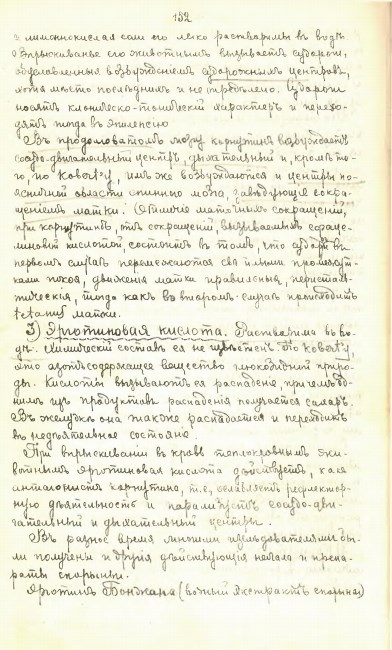 132
и лимоннокислая соли его легко растворимы въ водѣ.
Впрыскиванье его животнымъ вызываетъ судороги,
обусловленныя возбужденіемъ судорожныхъ центровъ,
хотя мѣсто послѣднихъ и не опредѣлено. Судороги
носятъ клоническо-тоническій характеръ и перехо-
дятъ тогда въ эпилепсію
Въ продолговатомъ мозгу корнутинъ возбуждаетъ
сосудо-двигательный центръ, дыхательный и, кромѣ то-
го, по Коберту, имъ же возбуждаются и центры по-
ясничной области спинного мозга, завѣдующіе сокра-
щеніемъ матки. Отличіе маточныхъ сокращеній,
при корнутинѣ, отъ сокращеній, вызываемыхъ сфаце-
линовой кислотой, состоитъ въ томъ, что судороги въ
первомъ случаѣ перемежаются съ полными промежут-
ками покоя, движенія матки правильныя, перисталь-
тическія, тогда какъ во второмъ случаѣ происходитъ
tetanus матки.
3) Эрготиновая кислота. Растворима въ во-
дѣ. Химическій составъ ея не По Коберту,
это азотсодержащее вещество глюкозидной приро-
ды. Кислоты вызываютъ ея распаденіе, причемъ од-
нимъ изъ продуктовъ распаденія получается сахаръ.
Въ желудкѣ она также распадается и переходитъ
въ недѣятельное состояніе.
При впрыскиваніи въ кровь теплокровнымъ жи-
вотнымъ эрготиновая кислота дѣйствуетъ, какъ
антагонистъ корнутина, т.е. ослабляетъ рефлектор-
ную дѣятельность и парализуетъ сосудо-дви-
гательный и дыхательный центры.
Въ разное время многими изслѣдователями бы-
ли получены и другія дѣйствующія начала и препа-
раты спорыньи.
Эрготинъ Бонжана (водный экстрактъ спорыньи)